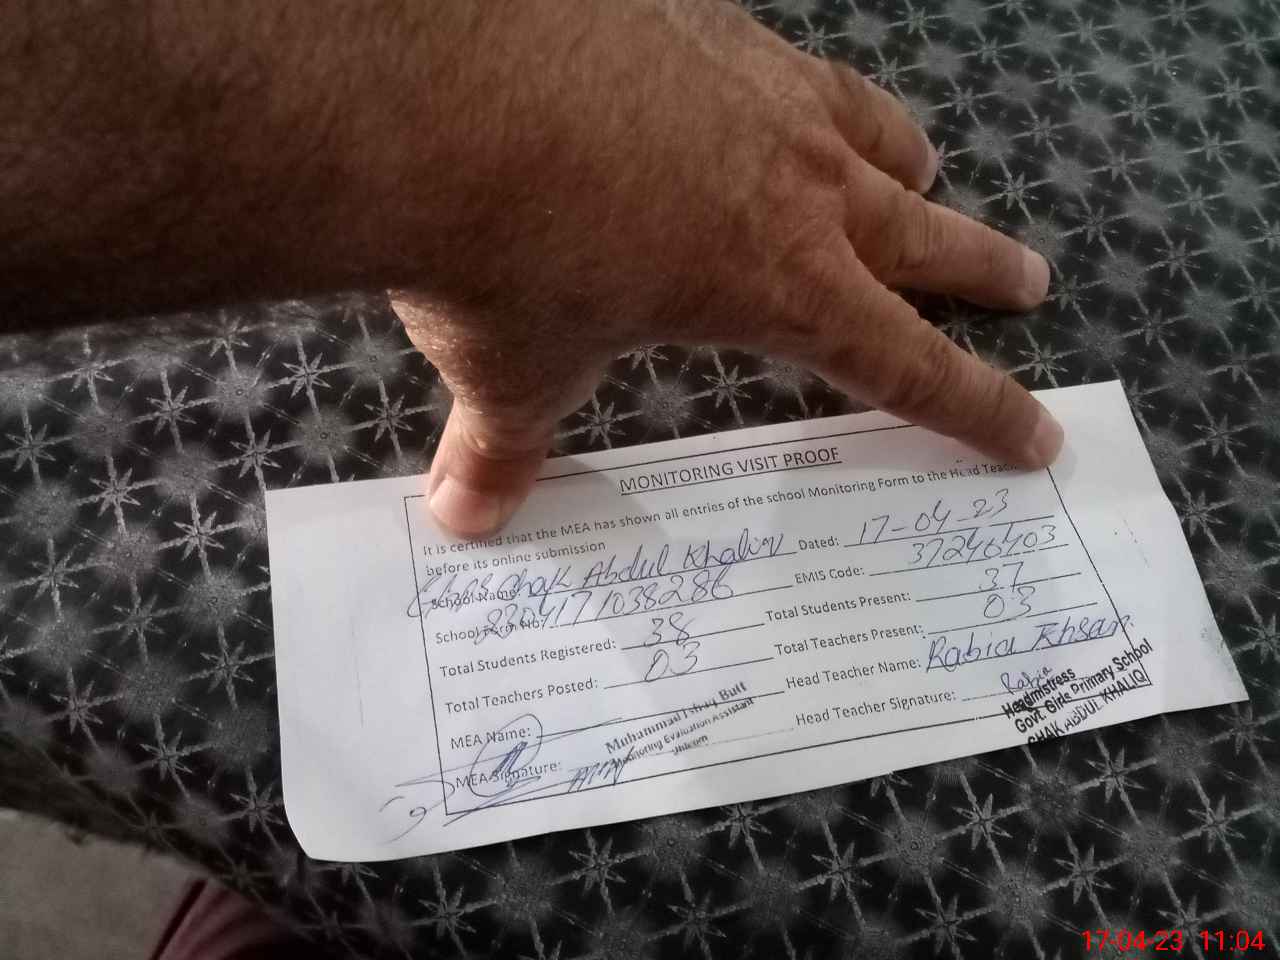 MONITORING VISIT PROOF
It is certified that the MEA has shown all entries of the school Monitoring Form to the Head Teac
before its online submission
School Name: GGPS Chak Abdul Khaliq Dated: 17-04-23
School Form No: 8304171038286 EMIS Code: 37246403
Total Students Registered: 38 Total Students Present: 37
Total Teachers Posted: 03 Total Teachers Present: 03
MEA Name: Head Teacher Name: Rabia Ehsan
Muhammad Ishaq Butt
Monitoring Evaluation Assistant
Jhelum
MEA Signature: Head Teacher Signature: Rabia
Headmistress
Govt. Girls Primary School
CHAK ABDUL KHALIQ
17-04-23 11:04